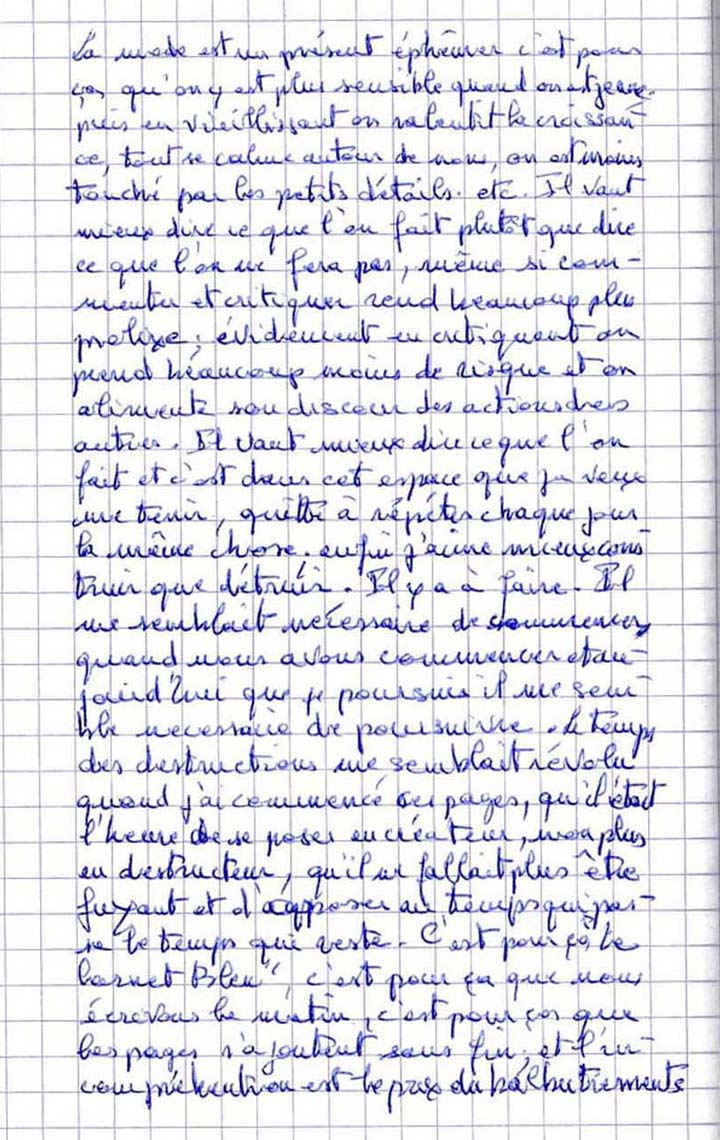 La mode est un présent éphémer c'est pour
ça qu'on y est plus sensible quand on est jeune.
puis en vieillissant on ralentit la croissan-
ce, tout se calme autour de nous, on est moins
touché par les petits détails. etc. Il vaut
mieux dire ce que l'on fait plutôt que dire
ce que l'on ne fera pas, même si com-
menter et critiquer rend beaucoup plus
prolixe, évidemment en critiquant on
prend beaucoup moins de risque et on
alimente son discour des actions des
autres. Il vaut mieux dire ce que l'on
fait et c'est dans cet espace que je veux
me tenir, quitte à répéter chaque jour
la même chose, enfin j'aime mieux cons-
truir que détruir. Il y a à faire. Il
me semblait nécessaire de commencer
quand nous avons commencer et au-
jourd'hui que je poursuis il me sem-
ble necessaire de poursuivre. Le temps
des destructions me semblait révolu
quand j'ai commencé ces pages, qu'il était
l'heure de se poser en créateur, non plus
en destructeur, qu'il ne fallait plus être
fuyant et d'opposer au temps qui pas-
se le temps qui reste. C'est pour ça, le
carnet Bleu", c'est pour ça que nous
écrivons le matin, c'est pour ças que
les pages s'ajoutent sans fin, et l'in-
compréhention est le prix du balbutiements